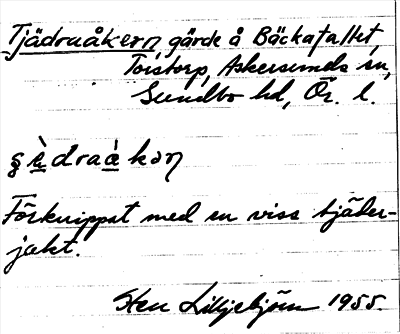 Tjädraåkern, gärde å Bäckafallet,
Torstorp, Askersunds sn,
Sundbo hd, Ör. l.
Förknippat med en viss tjäder-
jakt.
Sten Lilljebjörn 1955.